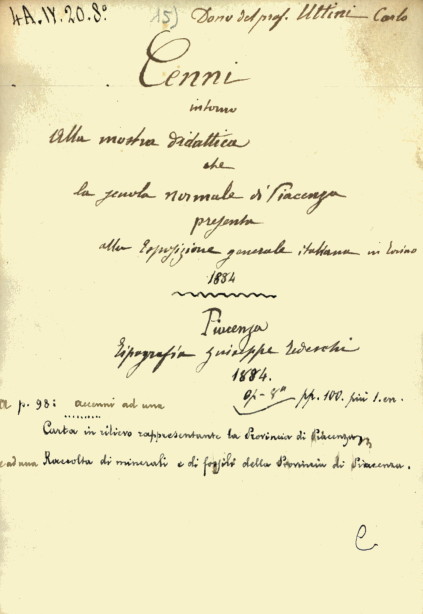 4A.IV.20.8º 15) Dono del prof. Uttini Carlo
Cenni
intorno
Alla mostra didattica
che
la scuola normale di Piacenza
presenta
alla Esposizione generale italiana in Torino
1884
Piacenza
Tipografia Giuseppe Tedeschi
1884.
op-8º pp. 100. più 1. cn.
a p. 98: accenni ad una
Carta in rilievo rappresentante la Provincia di Piacenza
e ad una Raccolta di minerali e di fossili della Provincia di Piacenza.